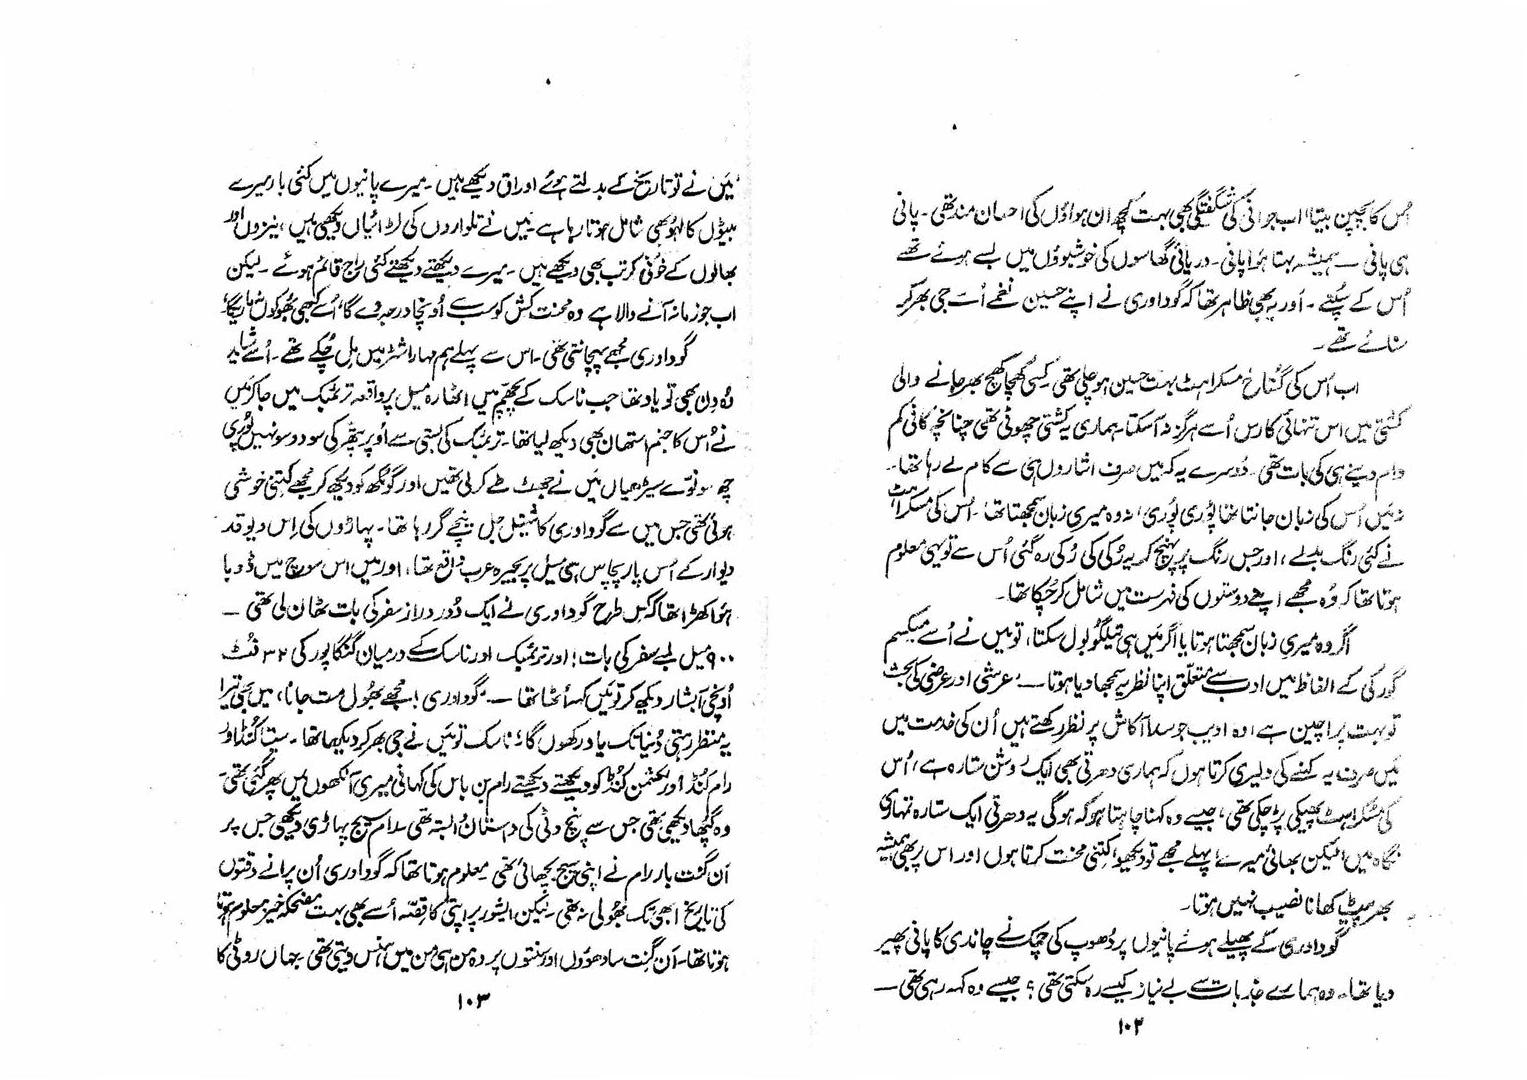 اُس کا بچپن بیتا، اب جوانی کی شگفتگی بھی بہت کچھ ان ہواؤں کی احسان مند تھی۔ پانی
ہی پانی — ہمیشہ بہتا ہوا پانی۔ دریائی گھاسوں کی خوشبوؤں میں بسے ہوئے تھے
اُس کے سُپنے۔ اور یہ بھی ظاہر تھا کہ گوداوری نے اپنے حسین نغمے اُسے جی بھر کر
سنائے تھے۔
اب اُس کی گستاخ مسکراہٹ بہت حسین ہو چلی تھی کِسی کھچا کھچ بھر جانے والی
کشتی میں اس تنہائی کا رس اُسے ہرگز نہ آسکتا۔ ہماری یہ کشتی چھوٹی تھی چنانچہ کافی کم
دام دینے ہی کی بات تھی۔ دُوسرے یہ کہ میں صرف اشاروں ہی سے کام لے رہا تھا۔
نہ میں اُس کی زبان جانتا تھا پُوری پُوری، نہ وہ میری زبان سمجھتا تھا۔ اُس کی مسکراہٹ
نے کئی رنگ بدلے، اور جس رنگ پر پہنچ کر یہ رُکی کی رُکی رہ گئی اُس سے تو یہی معلوم
ہوتا تھا کہ وُہ مجھے اپنے دوستوں کی فہرست میں شامل کر چُکا تھا۔
اگر وہ میری زبان سمجھتا ہوتا یا اگر مَیں ہی تیلگو بول سکتا، تو میں نے اُسے میکسم
گورکی کے الفاظ میں ادب سے متعلق اپنا نظریہ سمجھا دیا ہوتا — ’عرشی اور عرضی کی بحث
تو بہت پراچین ہے، وہ ادیب جو سدا آکاش پر نظر رکھتے ہیں اُن کی خدمت میں
مَیں صرف یہ کہنے کی دلیری کرتا ہوں کہ ہماری دھرتی بھی ایک روشن ستارہ ہے، اُس
کی مسکراہٹ پھیکی پڑ چکی تھی، جیسے وہ کہنا چاہتا ہو کہ ہوگی یہ دھرتی ایک ستارہ تمہاری
نگاہ میں! لیکن بھائی میرے! پہلے مجھے تو دیکھو! کتنی محنت کرتا ہوں اور اس پر بھی ہمیشہ
بھر پیٹ کھانا نصیب نہیں ہوتا۔
گوداوری کے پھیلے ہوئے پانیوں پر دُھوپ کی چمک نے چاندی کا پانی پھیر
دیا تھا۔ وہ ہمارے جذبات سے بے نیاز کیسے رہ سکتی تھی؟ جیسے وہ کہہ رہی تھی —
۱۰۲
’مَیں نے تو تاریخ کے بدلتے ہوئے اوراق دیکھے ہیں۔ میرے پانیوں میں کئی بار میرے
بیٹوں کا لہُو بھی شامل ہوتا رہا ہے۔ مَیں نے تلواروں کی لڑائیاں دیکھی ہیں، نیزوں اور
بھالوں کے خونی کرتب بھی دیکھے ہیں۔ میرے دیکھتے دیکھتے کئی راج قائم ہوئے۔ لیکن
اب جو زمانہ آنے والا ہے وہ محنت کش کو سب سے اُونچا درجہ دے گا،
گوداوری مجھے پہچانتی تھی۔ اس سے پہلے ہم مہاراشٹر میں مِل چُکے تھے۔ اُسے شاید
وُہ دِن بھی تو یاد تھا جب ناسک کے پچھّم میں اٹھارہ میل پر واقعہ ترئمبک میں جا کر مَیں
نے اُس کا جنم استھان بھی دیکھ لیا تھا۔ ترئمبک کی بستی سے اُوپر پتھّر کی سو دو سو نہیں پُوری
چھ سو نوّے سیڑھیاں مَیں نے جھٹ طے کر لی تھیں اور گئومُکھ کو دیکھ کر مجھے کتنی خوشی
ہوئی تھی جس میں سے گوداوری کا شیتل جل نیچے گر رہا تھا۔ پہاڑوں کی اِس دیوقد
دیوار کے اُس پار پچاس ہی میل پر بحیرہ عرب واقع تھا، اور مَیں اس سوچ میں ڈوبا
ہوا کھڑا تھا کہ کِس طرح گوداوری نے ایک دُور دراز سفر کی بات ٹھان لی تھی —
۹۰۰ میل لمبے سفر کی بات! اور ترئمبک اور ناسک کے درمیان گنگاپور کی ۳۲ فٹ
اُونچی آبشار دیکھ کر تو مَیں کہہ اُٹھا تھا — ’گوداوری! مجھے بھُول مت جانا، مَیں بھی تیرا
یہ منظر رہتی دُنیا تک یاد رکھوں گا،‘ ناسک تو مَیں نے جی بھر کر دیکھا تھا۔ سیتا کُنڈ اور
رام کنڈ اور لچھمن کُنڈ کو دیکھتے دیکھتے رام بن باس کی کہانی میری آنکھوں میں پھر گئی تھی۔
وہ گُپھا دیکھی تھی جس سے پنچ وٹی کی داستان وابستہ تھی۔ رام سیج پہاڑی دیکھی جس پر
اَن گنت بار رام نے اپنی سیج بچھائی تھی۔ معلوم ہوتا تھا کہ گوداوری اُن پرانے وقتوں
کی تاریخ ابھی تک بھُولی نہ تھی۔ لیکن ایشور پراپتی کا قصّہ اُسے بھی بہت مضحکہ خیز معلوم ہوتا
ہوتا تھا۔ اَن گنت سادھوؤں اور سنتوں پر وہ من ہی من میں ہنس دیتی تھی۔ جہاں روٹی کا
۱۰۳